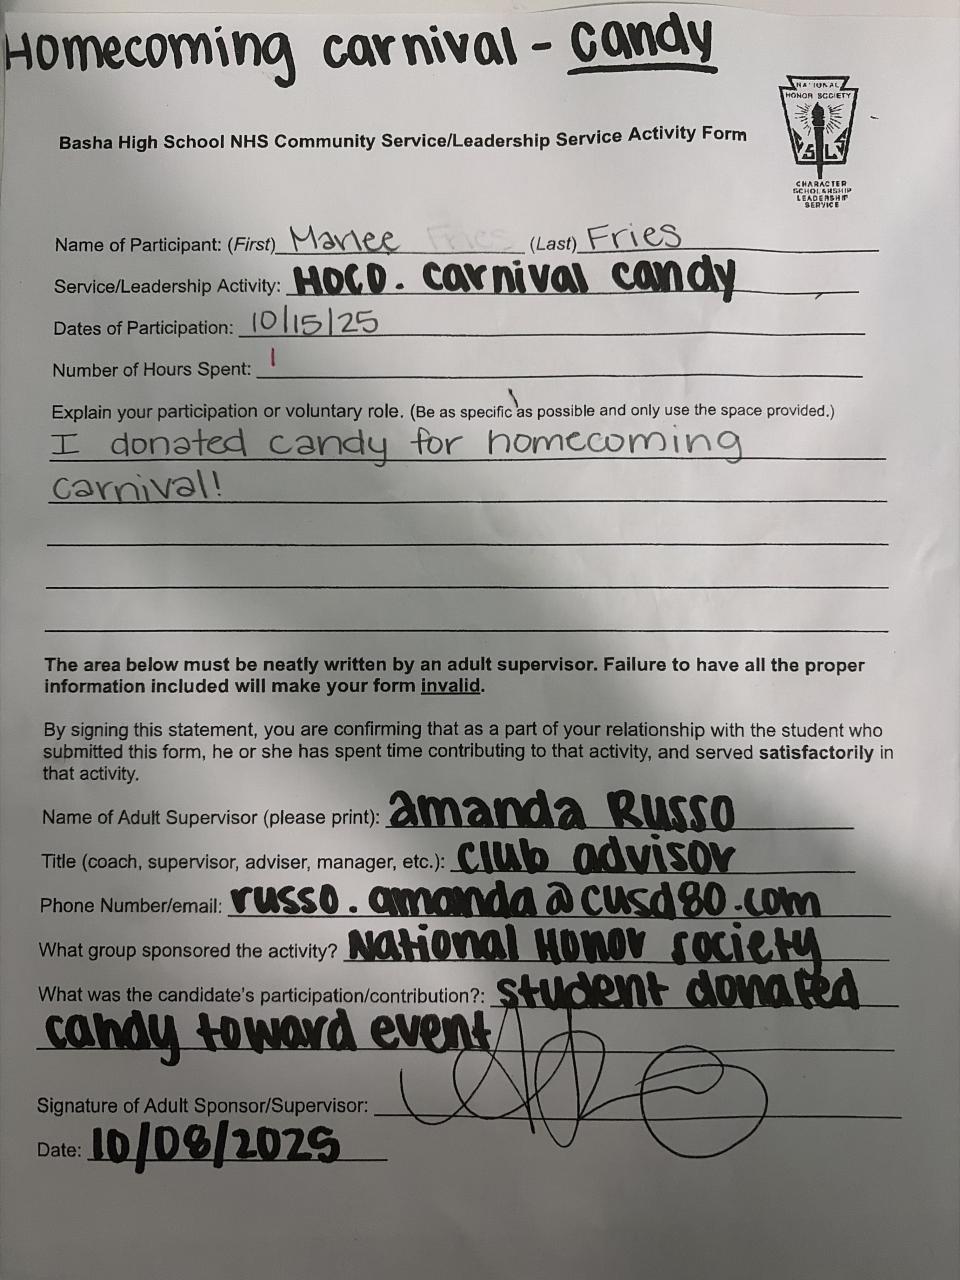 Homecoming carnival - candy
NATIONAL
HONOR SOCIETY
S L S
CHARACTER
SCHOLARSHIP
LEADERSHIP
SERVICE
Basha High School NHS Community Service/Leadership Service Activity Form
Name of Participant: (First) Marlee Fries (Last) Fries
Service/Leadership Activity: HOCO. carnival candy
Dates of Participation: 10/15/25
Number of Hours Spent: 1
Explain your participation or voluntary role. (Be as specific as possible and only use the space provided.)
I donated candy for homecoming
carnival!
The area below must be neatly written by an adult supervisor. Failure to have all the proper
information included will make your form invalid.
By signing this statement, you are confirming that as a part of your relationship with the student who
submitted this form, he or she has spent time contributing to that activity, and served satisfactorily in
that activity.
Name of Adult Supervisor (please print): amanda Russo
Title (coach, supervisor, adviser, manager, etc.): club advisor
Phone Number/email: russo.amanda@cusd80.com
What group sponsored the activity? National Honor society
What was the candidate's participation/contribution?: student donated
candy toward event
Signature of Adult Sponsor/Supervisor:
Date: 10/08/2025